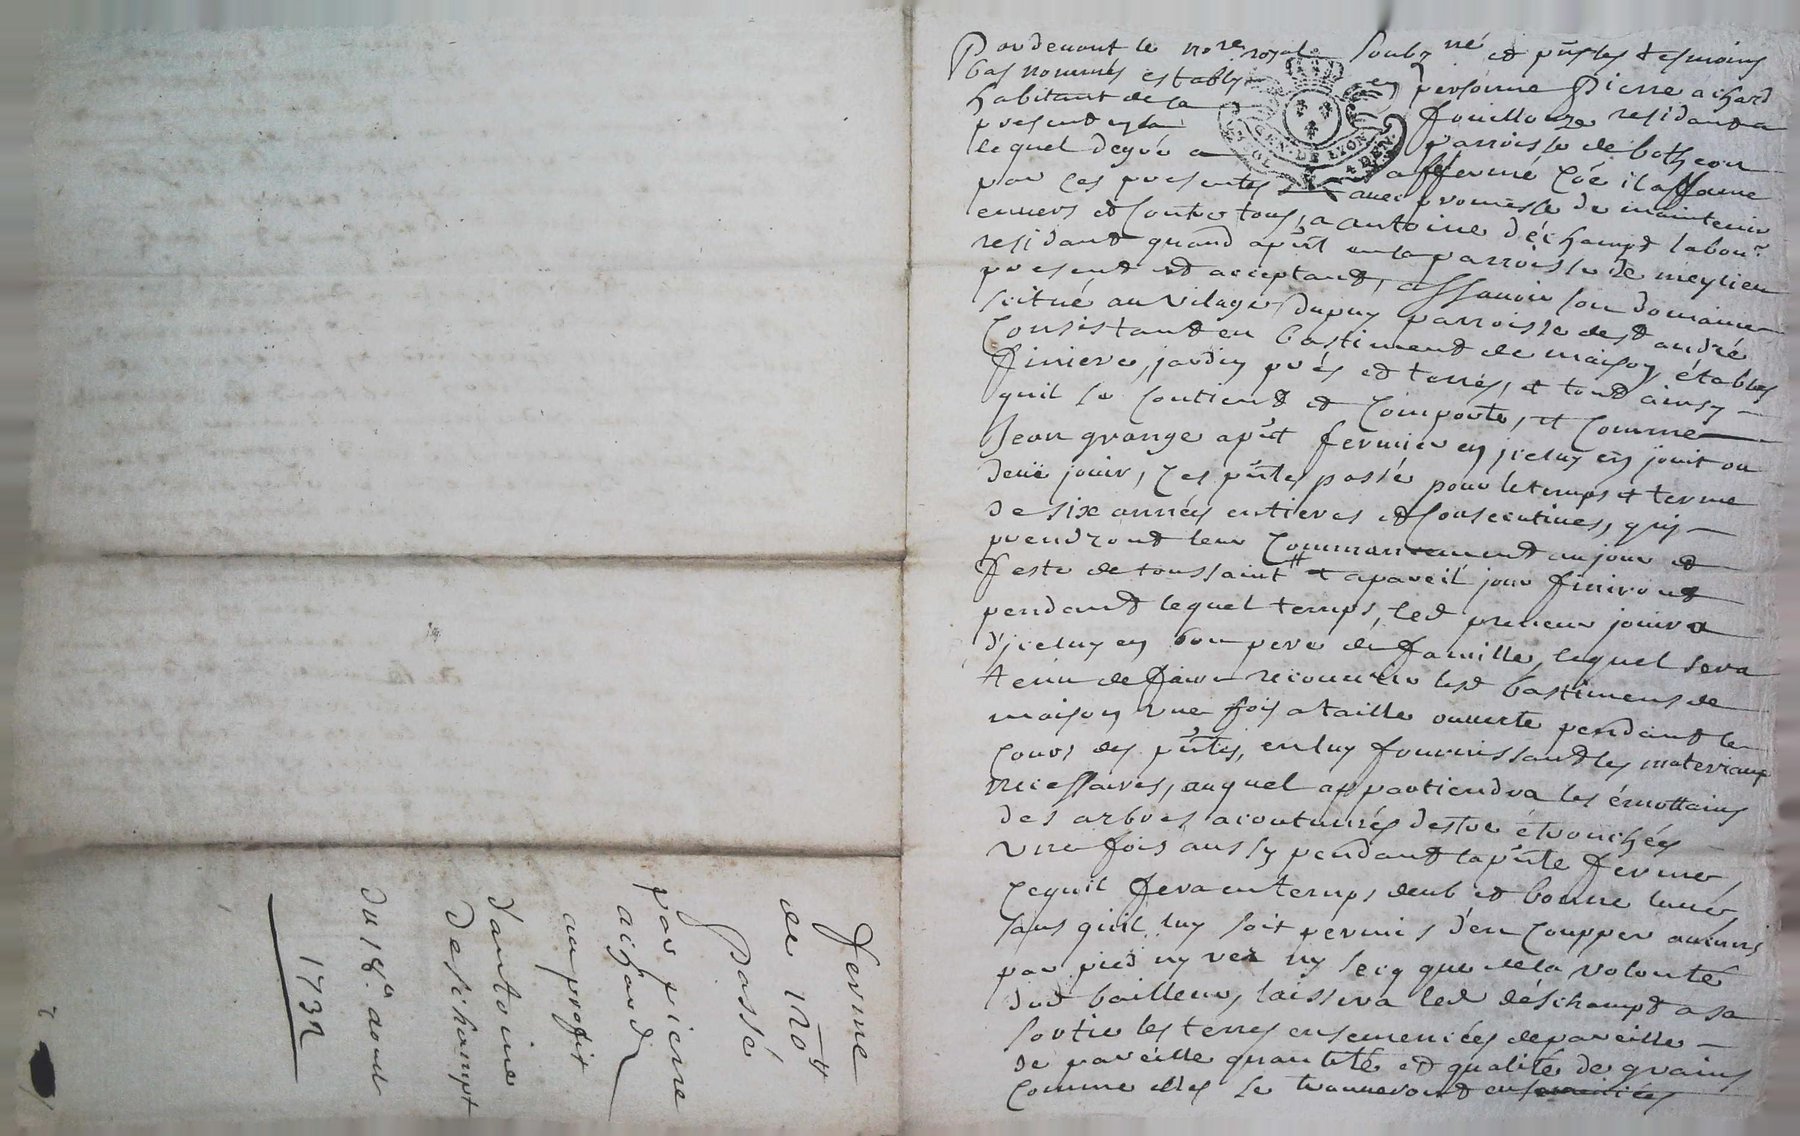 Pardevant le no.re royal soubz.né et p̃ntes tesmoins
bas nommés establi en personne Pierre achard
habitant de la fouillouze residant a
present en la parroisse de botheon
lequel de gré a affermé Cõe il afferme
par ces presentes avec promesse de maintenir
envers et contre tous, a antoine déchampt labou.r
residant quand a p̃nt en la parroisse de meylieu
present et acceptant, assavoir son domaine
scitué au vilage dupuy parroisse de st andré
Consistant en bastiment de maison, étables
finiere, jardin prés et terres, et tout ainsy
quil se contient et Comporte, et Comme
Jean grange a p̃nt fermier en jceluy en jouit ou
deüe jouir, Ces p̃ntes passé pour le temps et terme
de six années entieres et Consecutives, quy
prendront leur Commancement au jour et
feste de toussaint et a pareil jour finiront
pendant lequel temps, led preneur jouira
d'jceluy en bon pere de famille, lequel sera
tenu de faire recouvrir lesd bastimens de
maison une fois a taille ouverte pendant le
Cours des p̃ntes, en luy fournissant les materiaux
necessaires, auquel appartiendra les émottains
des arbres acoutumés destre étronchés
une fois aussy pendant la p̃nte ferme,
Cequil fera en temps deub et bonne lune,
sans quil luy soit permis d'en Coupper aucuns
par pied ny ver ny secq que de la volonté
dud bailleur, laissera led déschampt a sa
sortie les terres ensemencées de pareille
de pareille quantité et qualité de grains
Comme elles se trouveront ensemencées
GEN. DE LYON
4 DEN.
ferme
de 120ᵗᵗ
Passé
par pierre
achard
au profit
d'antoine
Deschampt
Du 18.e aout
1732